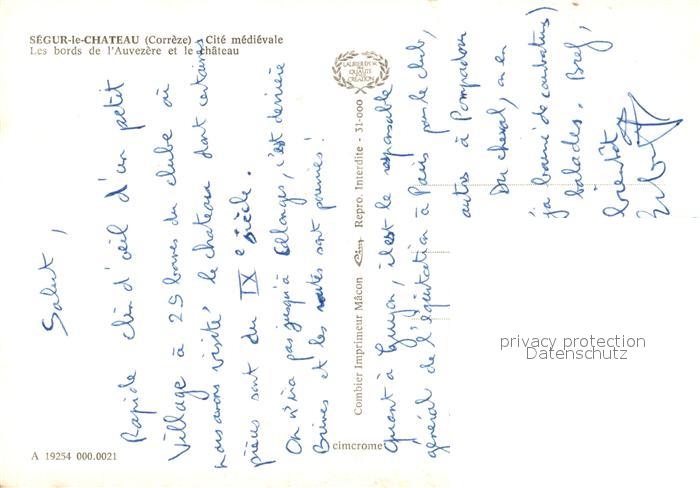 SÉGUR-le-CHATEAU (Corrèze) - Cité médiévale
Les bords de l'Auvezère et le château
LAURIER D'OR
DE LA
QUALITÉ
CRÉATION
Salut,
Rapide clin d'œil d'un petit
Village à 25 bornes du clube où
nous avons visité le chateau dont certaines
pièces sont du IX e siècle.
On n'ira pas jusqu'à c'est derrière
Brives et les routes sont pourries!
Combier Imprimeur Mâcon Cim Repro. Interdite - 31-000
cimcrome
Quant à Guyon, il est le responsable
général de l'équitation à Paris pour le club,
autre à Pompadour
Du cheval, on en
balades. Bref,
bientôt
privacy protection
Datenschutz
A 19254 000.0021